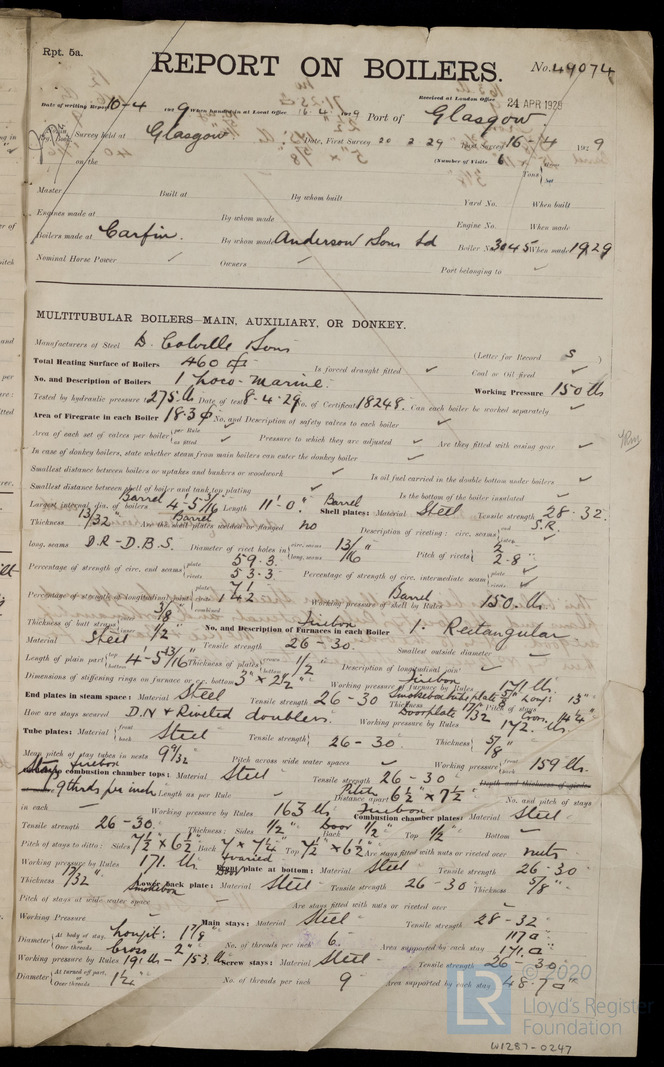 Rpt. 5a.
REPORT ON BOILERS.
No. 49074
Received at London Office 24 APR 1929
Date of writing Report 10-4 1929 When handed in at Local Office 16.4.1929 Port of Glasgow
Survey held at Glasgow Date, First Survey 20 2 29 Last Survey 16-4 1929
on the (Number of Visits 6) Tons
Master Built at By whom built Yard No. When built
Engines made at By whom made Engine No. When made
Boilers made at Carfin. By whom made Anderson Sons Ld Boiler No. 3045 When made 1929
Nominal Horse Power ✓ Owners ✓ Port belonging to ✓
MULTITUBULAR BOILERS MAIN, AUXILIARY, OR DONKEY.
Manufacturers of Steel D. Colville Sons (Letter for Record S)
Total Heating Surface of Boilers 460 Is forced draught fitted ✓ Coal or Oil fired ✓
No. and Description of Boilers 1 Loco-Marine. Working Pressure 150 lb
Tested by hydraulic pressure to 275 lb Date of test 8-4-29 No. of Certificate 18248. Can each boiler be worked separately ✓
Area of Firegrate in each Boiler 18.3 No. and Description of safety valves to each boiler ✓
Area of each set of valves per boiler per Rule as fitted ✓ Pressure to which they are adjusted ✓ Are they fitted with easing gear ✓
In case of donkey boilers, state whether steam from main boilers can enter the donkey boiler ✓
Smallest distance between boilers or uptakes and bunkers or woodwork ✓ Is oil fuel carried in the double bottom under boilers ✓
Smallest distance between shell of boiler and tank top plating ✓ Is the bottom of the boiler insulated ✓
Largest internal dia. of boilers Barrel 4'-5 3/16" Length 11'-0" Barrel Shell plates: Material Steel Tensile strength 28-32
Thickness 13/32" Are the shell plates welded or flanged Barrel no Description of riveting: circ. seams end S.R.
long. seams D.R-D.B.S. Diameter of rivet holes in circ. seams long. seams 13/16" Pitch of rivets 2 2.8"
Percentage of strength of circ. end seams plate 59.3 rivets 53.3 Percentage of strength of circ. intermediate seam plate rivets ✓
Percentage of strength of longitudinal joint plate 71 rivets 142 combined Working pressure of shell by Rules Barrel 150. lb
Thickness of butt straps outer 3/8 inner 1/2" No. and Description of Furnaces in each Boiler Firebox 1. Rectangular
Material Steel Tensile strength 26-30 Smallest outside diameter ✓
Length of plain part top bottom 4'-5 13/16" Thickness of plates crown bottom 1/2" Description of longitudinal joint ✓
Dimensions of stiffening rings on furnace or c.c. bottom 3" x 2 1/2" Working pressure of furnace by Rules Firebox 171 lb
End plates in steam space: Material Steel Tensile strength 26-30 Thickness Smokebox tube plate 5/8" Doorplate 17/32" Pitch of stays Longt: 13" Cross. 14 1/4"
How are stays secured D.N & Riveted doublers. Working pressure by Rules 172. lb
Tube plates: Material front back Steel Tensile strength 26-30 Thickness 5/8"
Mean pitch of stay tubes in nests 9 9/32 Pitch across wide water spaces ✓ Working pressure front back 159 lb.
Stays firebox combustion chamber tops: Material Steel Tensile strength 26-30 Depth and thickness of girder
9 thrds per inch Length as per Rule Distance apart Pitch 6 1/2" x 7 1/2" No. and pitch of stays
in each ✓ Working pressure by Rules 163 lb Firebox Combustion chamber plates: Material Steel
Tensile strength 26-30 Thickness: Sides 1/2" Door Back 1/2" Top 1/2" Bottom ✓
Pitch of stays to ditto: Sides 7 1/2" x 6 1/2" Back 7 x 7 1/4" Top 7 1/2" x 6 1/2" Are stays fitted with nuts or riveted over nuts
Working pressure by Rules 171. lb Front plate at bottom: Material Steel Tensile strength 26-30
Thickness 17/32" Smokebox Lower back plate: Material Steel Tensile strength 26-30 Thickness 5/8"
Pitch of stays at wide water space ✓ Are stays fitted with nuts or riveted over ✓
Working Pressure ✓ Main stays: Material Steel Tensile strength 28-32
Diameter At body of stay, or Over threads Longit: 1 7/8" Cross 2" No. of threads per inch 6. Area supported by each stay 117 171
Working pressure by Rules 191 lb - 153 lb Screw stays: Material Steel Tensile strength 26-30
Diameter At turned off part, or Over threads 1 1/4" No. of threads per inch 9 Area supported by each stay 48.7
© 2020
LR
Lloyd's Register
Foundation
W1287-0247